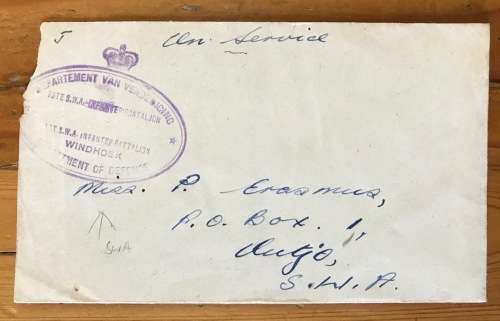 5
On Service
DEPARTEMENT VAN VERDEDIGING
1STE S.W.A.-INFANTERIEBATALJON
1ST S.W.A. INFANTRY BATTALION
WINDHOEK
DEPARTMENT OF DEFENCE
Miss. P. Erasmus,
P.O. Box. 1,
Outjo,
S.W.A.
SWA